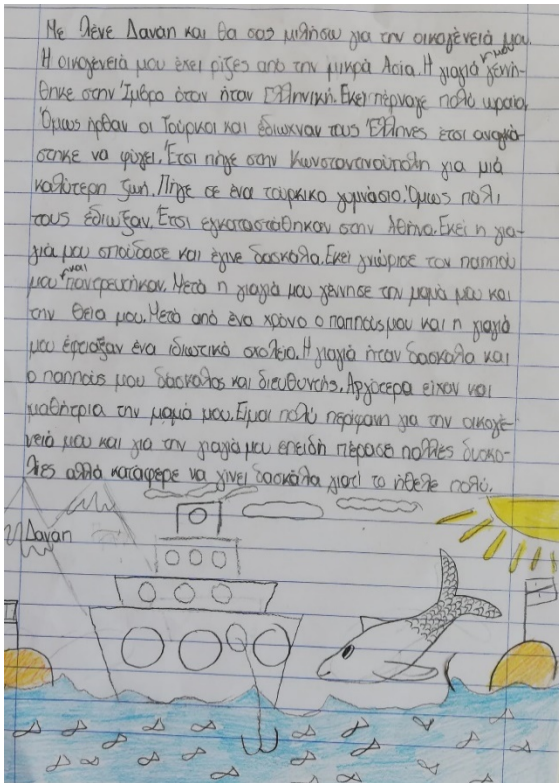 Με λένε Δανάη και θα σας μιλήσω για την οικογένειά μου.
Η οικογένειά μου έχει ρίζες από την μικρά Ασία. Η γιαγιά μου γεννή-
θηκε στην Ίμβρο όταν ήταν Ελληνική. Εκεί πέρναγε πολύ ωραία.
Όμως ήρθαν οι Τούρκοι και έδιωχναν τους Έλληνες έτσι αναγκά-
στηκε να φύγει. Έτσι πήγε στην Κωνσταντινούπολη για μιά
καλύτερη ζωή. Πήγε σε ένα τούρκικο γυμνάσιο. Όμως πάλι
τους έδιωξαν. Έτσι εγκαταστάθηκαν στην Αθήνα. Εκεί η για-
γιά μου σπούδασε και έγινε δασκάλα. Εκεί γνώρισε τον παππού
μου και παντρεύτηκαν. Μετά η γιαγιά μου γέννησε την μαμά μου και
την θεία μου. Μετά από ένα χρόνο ο παππούς μου και η γιαγιά
μου έφτιαξαν ένα ιδιωτικό σχολείο. Η γιαγιά ήταν δασκάλα και
ο παππούς μου δάσκαλος και διευθυντής. Αργότερα είχαν και
μαθήτρια την μαμά μου. Είμαι πολύ περίφανη για την οικογέ-
νειά μου και για την γιαγιά μου επειδή πέρασε πολλές δυσκο-
λίες αλλά κατάφερε να γίνει δασκάλα γιατί το ήθελε πολύ.
Δανάη